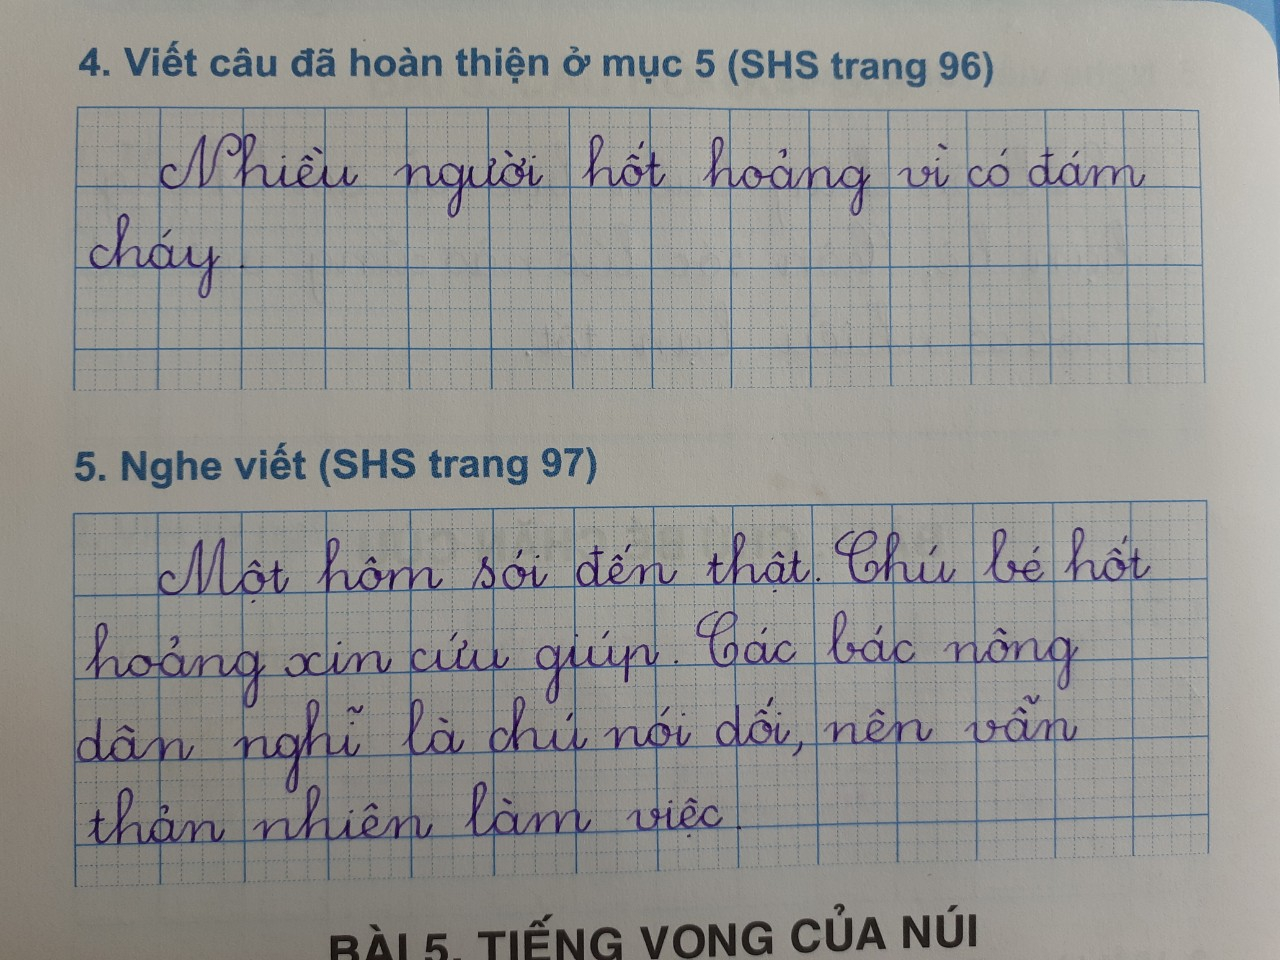 4. Viết câu đã hoàn thiện ở mục 5 (SHS trang 96)
Nhiều người hốt hoảng vì có đám
cháy.
5. Nghe viết (SHS trang 97)
Một hôm sói đến thật. Chú bé hốt
hoảng xin cứu giúp. Các bác nông
dân nghĩ là chú nói dối, nên vẫn
thản nhiên làm việc.
BÀI 5. TIẾNG VỌNG CỦA NÚI